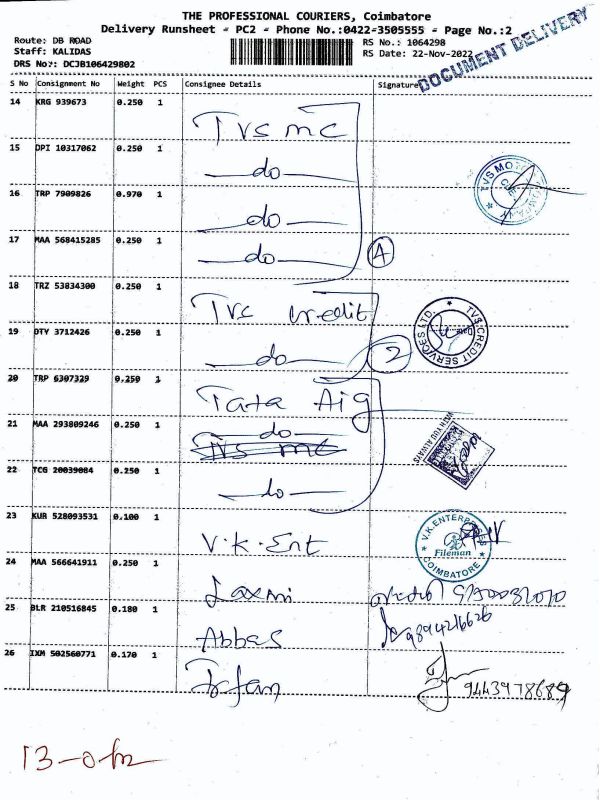 THE PROFESSIONAL COURIERS, Coimbatore
Delivery Runsheet - PC2 - Phone No.:0422-3505555 - Page No.:2
Route: DB ROAD RS No.: 1064298
Staff: KALIDAS RS Date: 22-Nov-2022
DRS No?: DCJB106429802
DOCUMENT DELIVERY
S No Consignment No Weight PCS Consignee Details Signature
14 KRG 939673 0.250 1 Tvs mc
15 DPI 10317062 0.250 1 do
16 TRP 7909826 0.970 1 do
17 MAA 568415285 0.250 1 do 4
TVS MOTOR COMPANY
18 TRZ 53834300 0.250 1 Tvs credit
19 DTY 3712426 0.250 1 do 2
TVS CREDIT SERVICES LTD.
20 TRP 6307329 0.250 1 Tata Aig
21 MAA 293809246 0.250 1 do
Tvs mc
WITH YOU ALWAYS
22 TCG 20039084 0.250 1 do
23 KUR 528093531 0.100 1 V.K.Ent
V.K.ENTERPRISES
Fileman
COIMBATORE
24 MAA 566641911 0.250 1 Laxmi
25 BLR 210516845 0.180 1 Abbas 9894216626
26 IXM 502560771 0.170 1 Irfan 9443978689